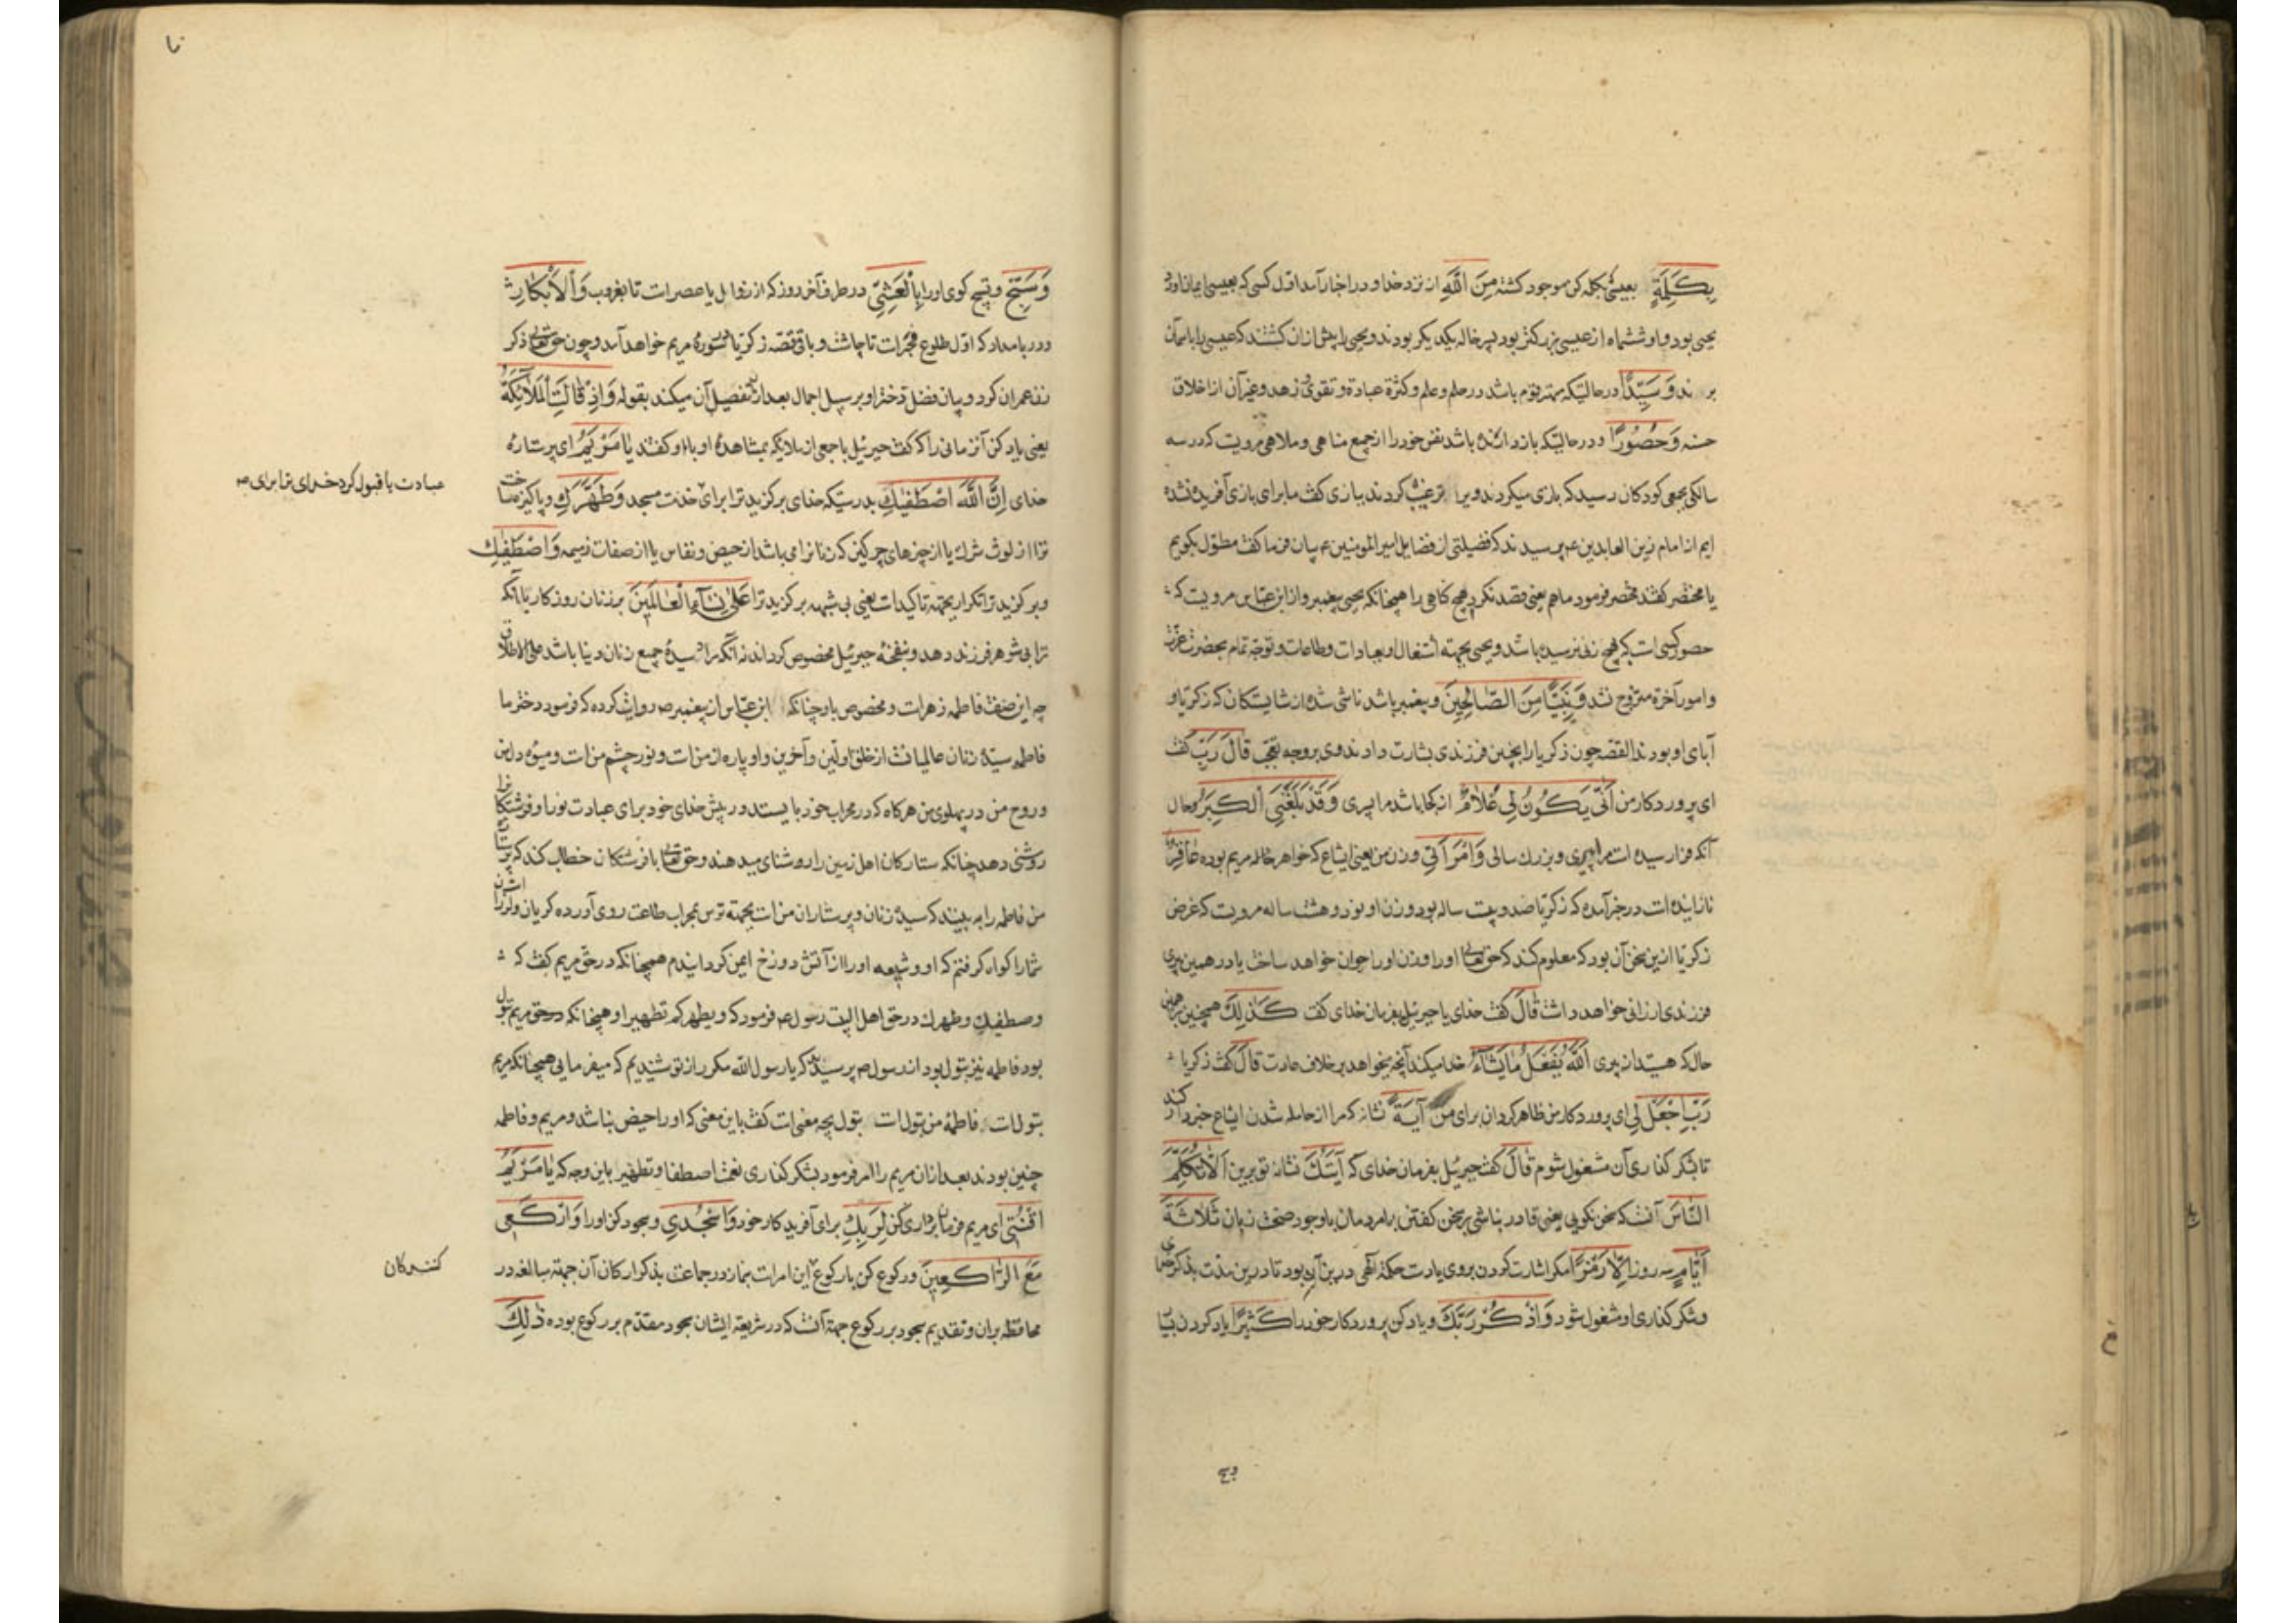 بِكَلِمَةٍ بعیسی که بکلمه کن موجود کشته مِنَ اللَّهِ از نزد خدا و در اخبار آمده اول کسی که بعیسی ایمان اورد
یحیی بود و او ششماه از عیسی بزرکتر بود پسر خاله یکدیکر بودند و یحیی را پیش از ان کشتند که عیسی را باسمان
برند وَ سَيِّدًا در حالتیکه مهتر قوم باشد در حلم و علم و کثرة عبادة و تقوی و زهد و غیر آن از اخلاق
حسنه وَ حَصُورًا و در حالتیکه باز دارنده باشد نفس خود را از جمیع مناهی و ملاهی مرویست که در سه
سالکی بجمعی کودکان رسید که بازی میکردند ویرا ترغیب کردند ببازی کفت ما برای بازی آفریده نشده
ایم از امام زین العابدین ع پرسیدند که فضیلتی از فضایل امیر المومنین ع بیان فرما کفت مطول بکویم
یا مختصر کفتند مختصر فرمود ما هم یعنی قصد نکرد هیچ کناهی را همچنانکه یحیی پیغمبر و از ابن عباس مرویست که
حصور کسی است که بهیچ زنی نرسیده باشد و یحیی بجهته اشتغال او بعبادات و طاعات و توجه تمام بحضرت عزت
و امور آخرة متزوج نشد وَ نَبِيًّا مِنَ الصَّالِحِينَ و پیغمبر باشد ناشی شده از شایستکان که زکریا و
آبای او بودند القصه چون زکریا را بچنین فرزندی بشارت دادند وی بروجه تعجب قَالَ رَبِّ کفت
ای پروردکار من أَنَّى يَكُونُ لِي غُلَامٌ از کجا باشد مرا پسری وَ قَدْ بَلَغَنِيَ الْكِبَرُ و حال
آنکه فرا رسیده است مرا پیری و بزرک سالی وَ امْرَأَتِي و زن من یعنی ایشاع که خواهر خاله مریم بوده عَاقِرٌ
نازاینده است در خبر آمده که زکریا صد و بیست ساله بود و زن او نود و هشت ساله مرویست که غرض
زکریا ازین سخن آن بود که معلوم کند که حق تعالی او را و زن او را جوان خواهد ساخت یا در همین پیری
فرزندی ارزانی خواهد داشت قَالَ کفت خدای یا جبرئیل بفرمان خدای کفت كَذَلِكَ همچنین بر همین
حال که هستید از پیری اللَّهُ يَفْعَلُ مَا يَشَاءُ خدا میکند آنچه میخواهد بر خلاف عادت قَالَ کفت زکریا
رَبِّ اجْعَلْ لِي ای پروردکار من ظاهر کردان برای من آيَةً نشانه که مرا از حامله شدن ایشاع خبردار کند
تا بشکر کذاری آن مشغول شوم قَالَ کفت جبرئیل بفرمان خدای که آيَتُكَ نشانه تو برین أَلَّا تُكَلِّمَ
النَّاسَ آنست که سخن نکویی یعنی قادر نباشی بر سخن کفتن با مردمان با وجود صحت زبان ثَلَاثَةَ
أَيَّامٍ سه روز إِلَّا رَمْزًا مکر اشارت کردن بروی یا دست حکمة الهی درین آن بود تا درین مدت بذکر خدای
و شکر کذاری او مشغول شود وَ اذْكُرْ رَبَّكَ و یاد کن پروردکار خود را كَثِيرًا یاد کردن بسیار
وسبح
وَ سَبِّحْ و تسبیح کوی او را بِالْعَشِيِّ در طرف آخر روز که از زوال یا عصر است تا بغروب وَ الْإِبْكَارِ
و در بامداد که اول طلوع فجر است تا چاشت و باقی قصه زکریا در سوره مریم خواهد آمد و چون حق تعالی ذکر
زن عمران کرد و بیان فضل دختر او بر سبیل اجمال بعد از آن تفصیل آن میکند بقوله وَ إِذْ قَالَتِ الْمَلَائِكَةُ
یعنی یاد کن آنزمانی را که کفت جبرئیل با جمعی از ملایکه بمشاهده او با او کفتند يَا مَرْيَمُ ای پرستاره
خدای إِنَّ اللَّهَ اصْطَفَيكِ بدرستیکه خدای برکزید ترا برای خدمت مسجد وَ طَهَّرَكِ و پاکیزه ساخت
عبادت یا قبول کرد خدای ترا برای
ترا از لوث شرک یا از چیزهای چرکین که زنانرا می باشد از حیض و نفاس یا از صفات ذمیمه وَ اصْطَفَيكِ
و برکزید ترا تکرار بجهته تاکید است یعنی بی شبهه برکزید ترا عَلَى نِسَاءِ الْعَالَمِينَ بر زنان روزکار باآنکه
ترا بی شوهر فرزند دهد و بنفخه جبرئیل مخصوص کرداند نه آنکه مراد سیده جمیع زنان دنیا باشد علی الاطلاق
چه این صفت فاطمه زهراست و مخصوص باو چنانکه ابن عباس از پیغمبر ص روایت کرده که فرمود دختر ما
فاطمه سیده زنان عالمیانست از خلق اولین و آخرین و او پاره از منست و نور چشم منست و میوه دل من
و روح من در پهلوی من هرکاه که در محراب خود بایستد در پیش خدای خود برای عبادت نور او فرشتکانرا
روشنی دهد چنانکه ستارکان اهل زمین را روشنای میدهند و حق تعالی با فرشتکان خطاب کند که پرستار
من فاطمه را به بینید که سیده زنان و پرستاران منست بجهته ترس بمحراب طاعت روی آورده کریان و لرزان
شما را کواه کرفتم که او و شیعه او را از آتش دوزخ ایمن کردانیدم همچنانکه در حق مریم کفت که
وصطفیک وطهرک در حق اهل البیت رسول ص فرمود که ویطهرکم تطهیرا و همچنانکه در حق مریم بتول
بود فاطمه نیز بتول بود از رسول ص پرسیدند که یا رسول الله مکرر از تو شنیدیم که میفرمایی همچنانکه مریم
بتولست فاطمه من بتولست بتول بچه معنی است کفت باین معنی که او را حیض نباشد و مریم و فاطمه
چنین بودند بعد ازان مریم را امر فرمود بشکر کذاری نعمت اصطفا و تطهیر باین وجه که يَا مَرْيَمُ
اقْنُتِي ای مریم فرمان برداری کن لِرَبِّكِ برای آفریدکار خود وَ اسْجُدِي و سجود کن او را وَ ارْكَعِي
مَعَ الرَّاكِعِينَ و رکوع کن با رکوع این امر است بنماز در جماعت بذکر ارکان آن جهته مبالغه در
کنندکان
محافظه بران و تقدیم سجود بر رکوع جهته آنست که در شریعه ایشان سجود مقدم بر رکوع بوده ذَلِكَ